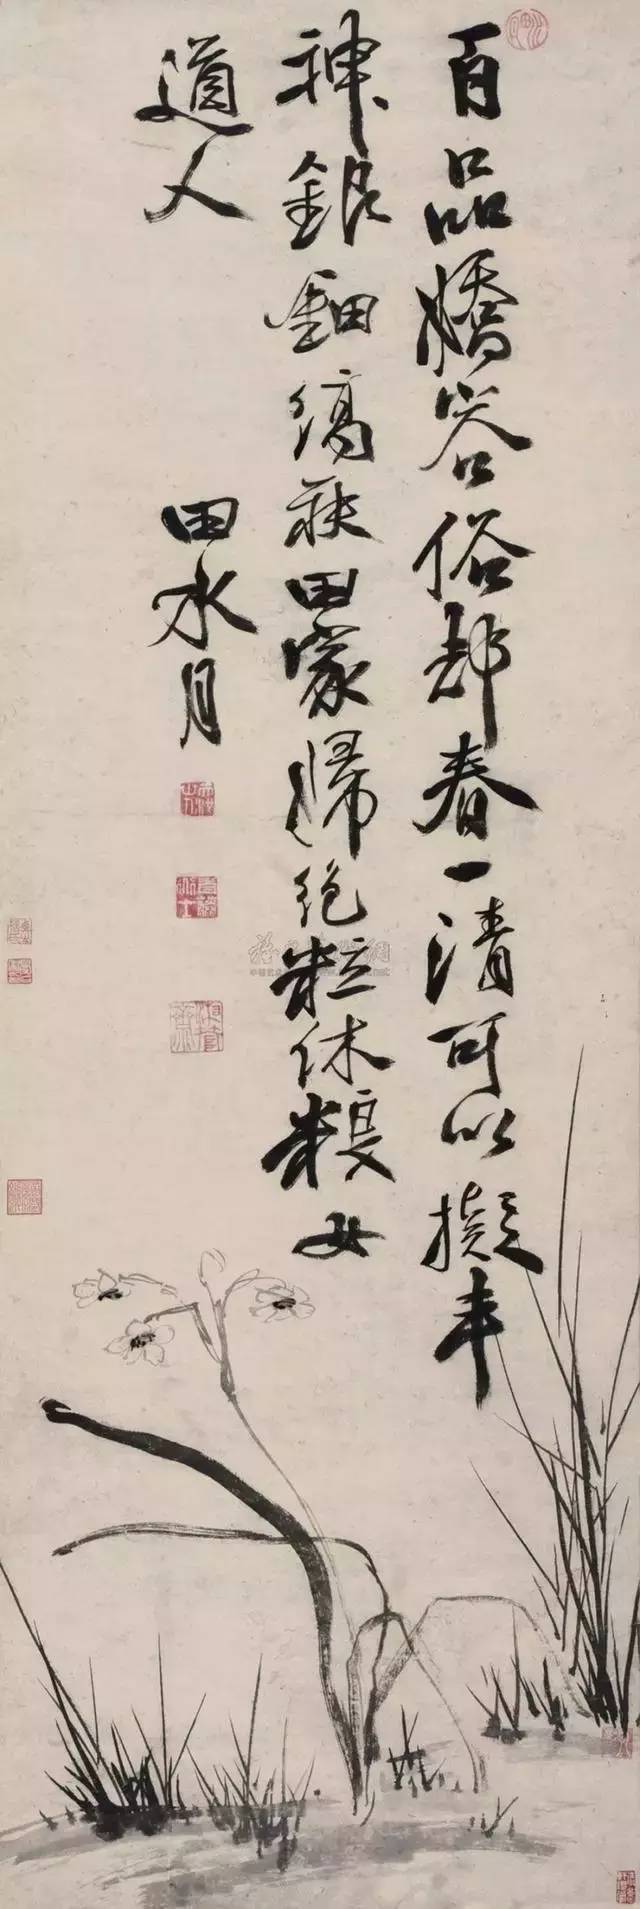 百品嬌容俗却春一清可以擬丰
神銀鈿縞袂田家婦絕粒休糧女
道人
田水月